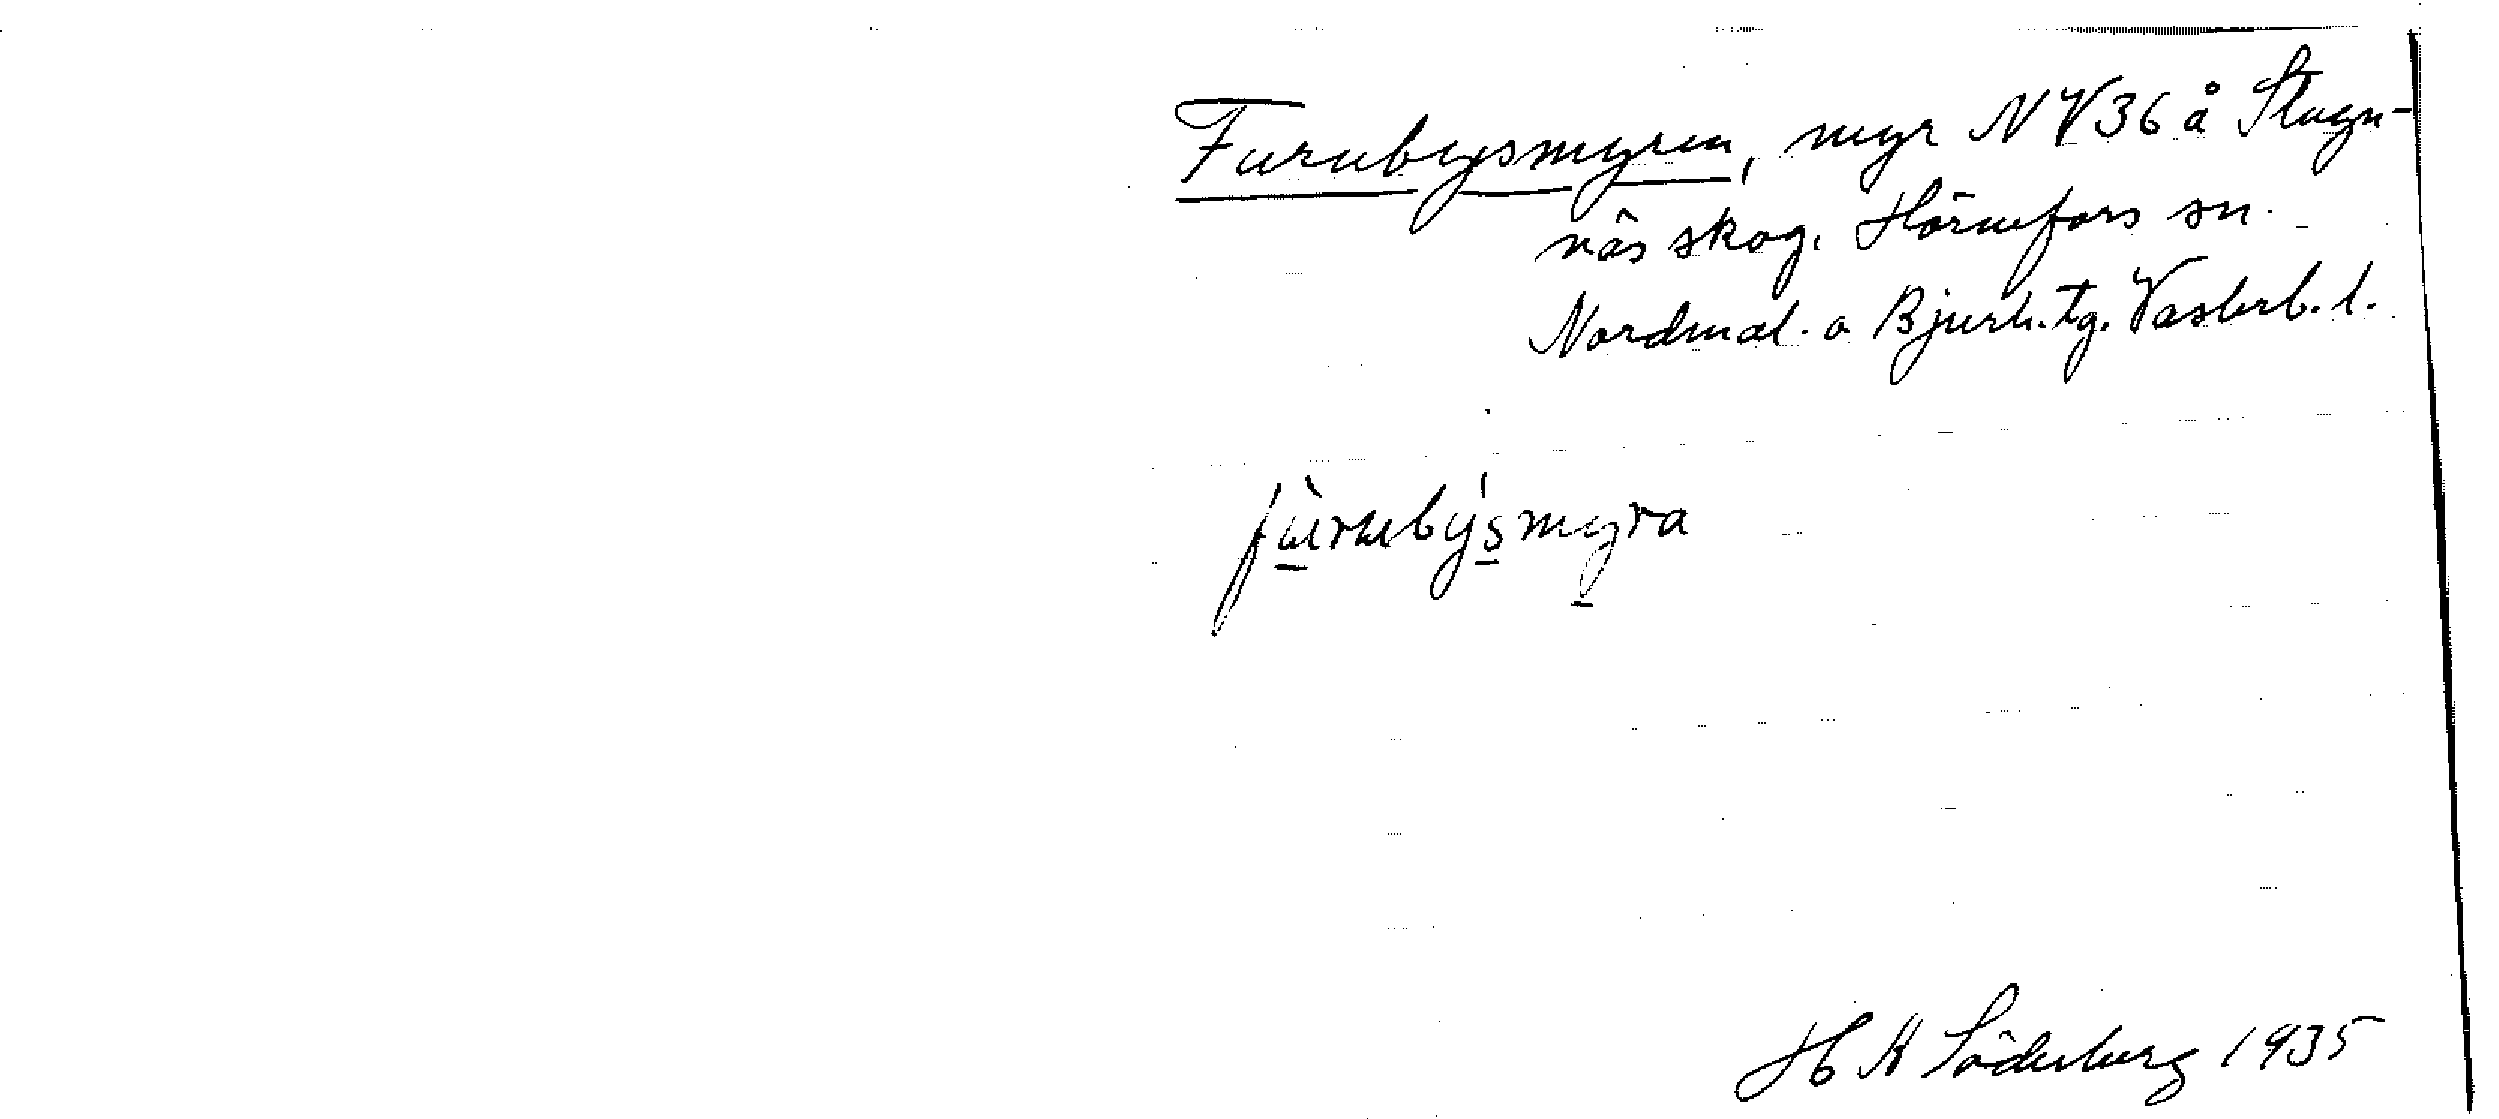 Furubysmyren, myr NV36 å Stugn-
näs skog. Hörnefors sn.
Nordmal. o Bjurh. tg. Västerb. l.
fùrubýsmyra
H Söderberg 1935